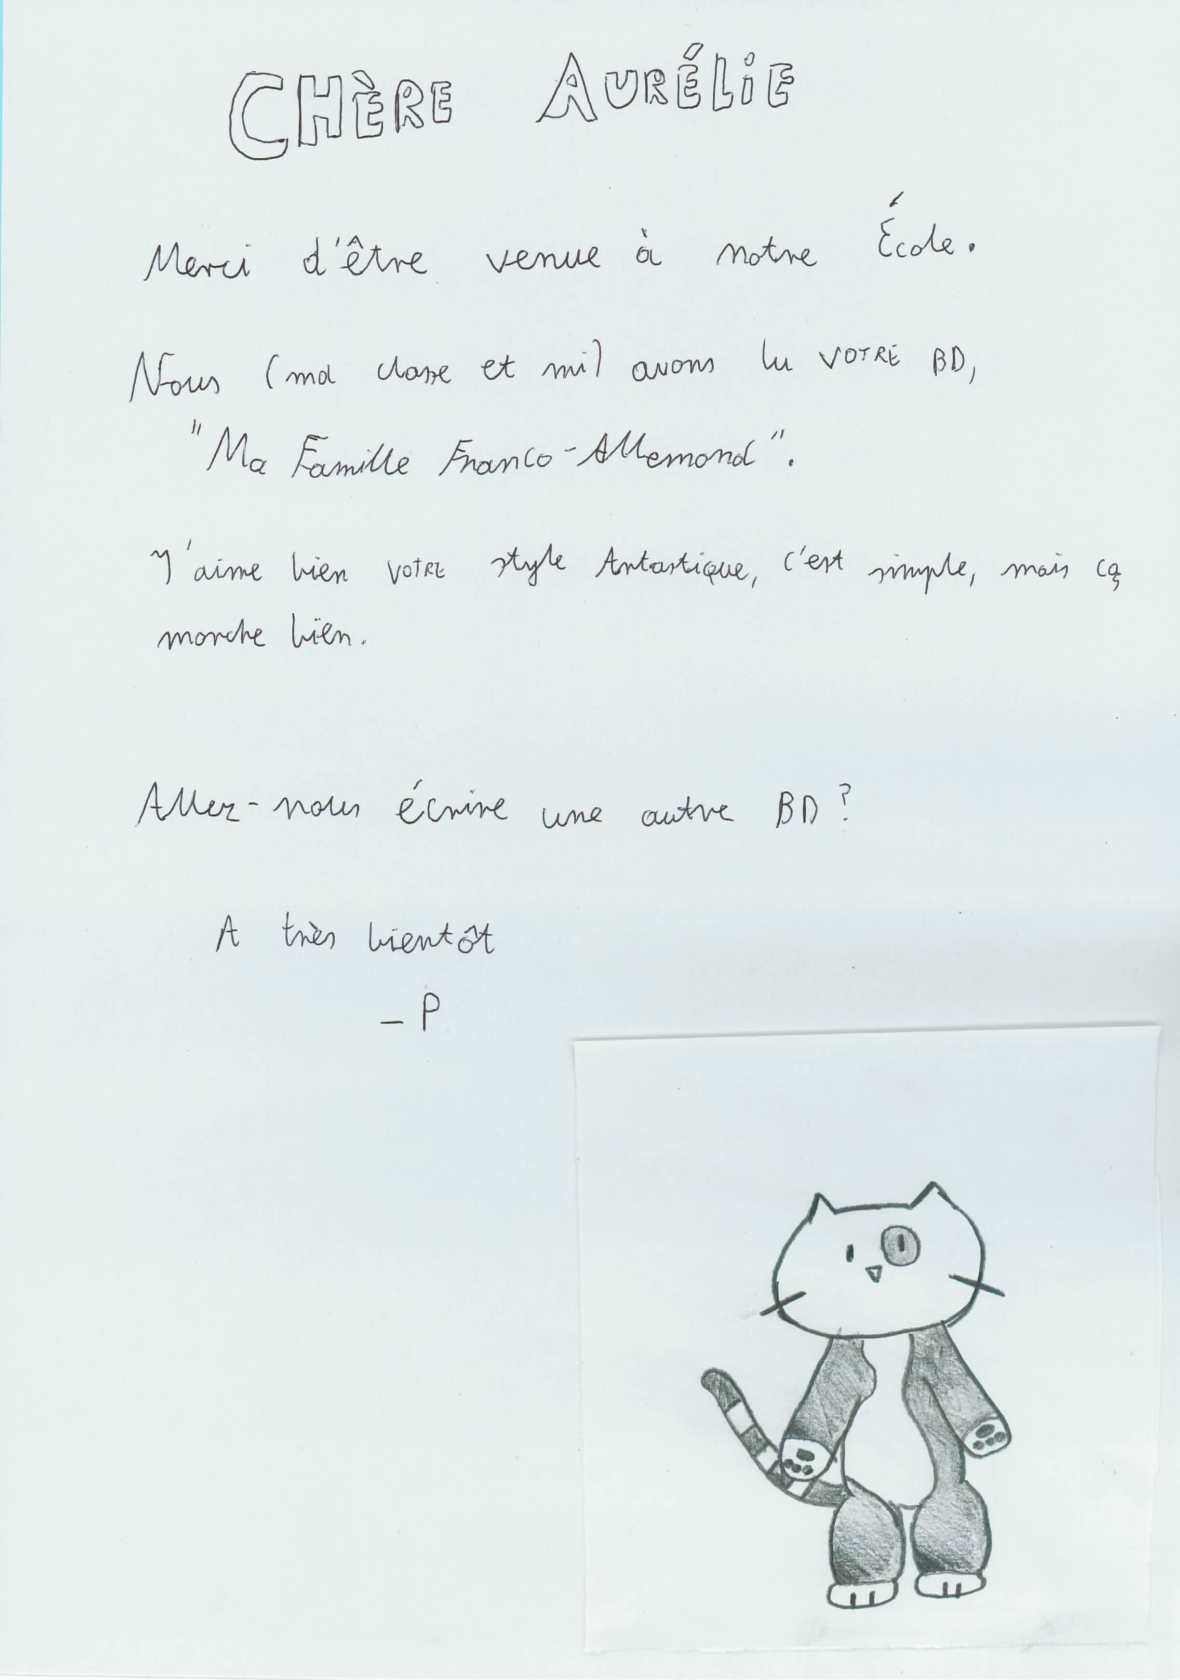 CHÈRE AURÉLIE
Merci d'être venue à notre École.
Nous (ma classe et mi) avons lu VOTRE BD,
"Ma Famille Franco-Allemand".
J'aime bien VOTRE style Artastique, c'est simple, mais ça
marche bien.
Allez-nous écrire une autre BD?
A très bientôt
– P